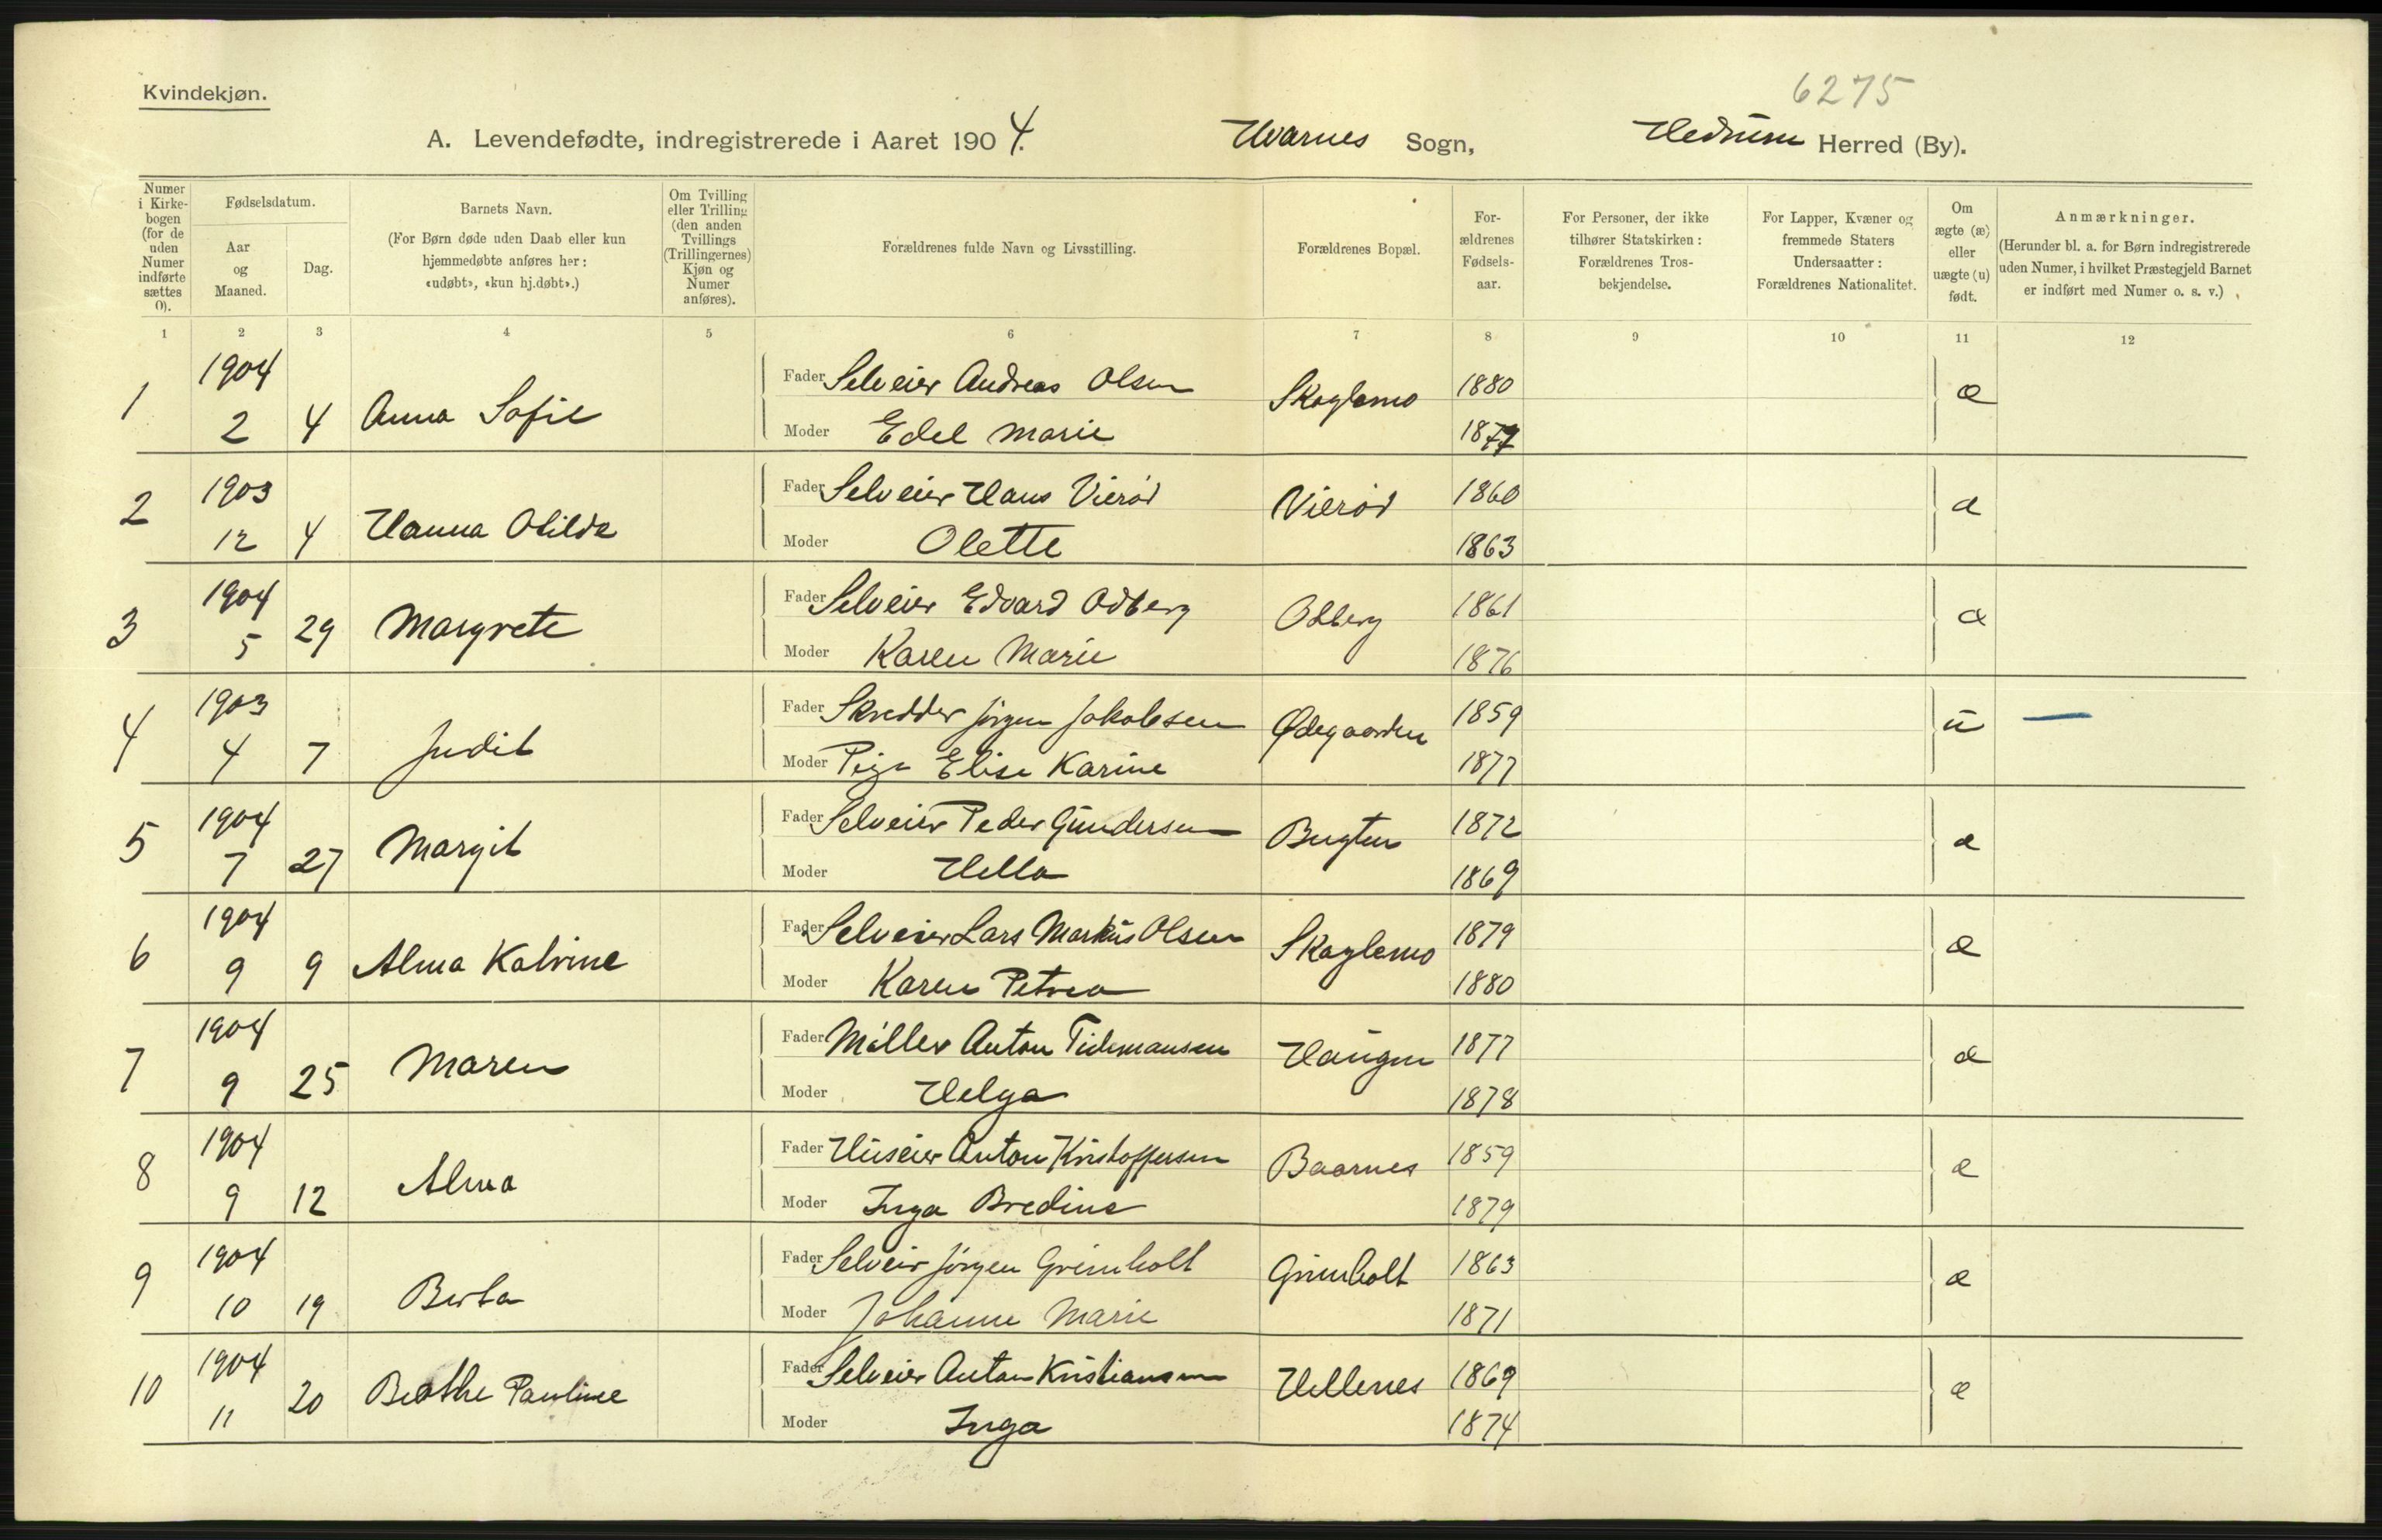 6275
Kvindekjøn.
A. Levendefødte, indregistrerede i Aaret 1904. Hvarnes Sogn, Hedrum Herred (By).
Numer i Kirkebogen (for de uden Numer indførte sættes 0).
Fødselsdatum.
Aar og Maaned.
Dag.
Barnets Navn.
(For Børn døde uden Daab eller kun hjemmedøbte anføres her: «udøbt», «kun hj.døbt».)
Om Tvilling eller Trilling (den anden Tvillings (Trillingernes) Kjøn og Numer anføres).
Forældrenes fulde Navn og Livsstilling.
Forældrenes Bopæl.
For-ældrenes Fødsels-aar.
For Personer, der ikke tilhører Statskirken: Forældrenes Tros-bekjendelse.
For Lapper, Kvæner og fremmede Staters Undersaatter: Forældrenes Nationalitet.
Om ægte (æ) eller uægte (u) født.
Anmærkninger.
(Herunder bl. a. for Børn indregistrerede uden Numer, i hvilket Præstegjeld Barnet er indført med Numer o. s. v.)
1 2 3 4 5 6 7 8 9 10 11 12
1 1904 2 4 Anna Sofie Fader Selveier Andreas Olsen Skoglemo 1880 æ
Moder Edel Marie 1877
2 1903 12 4 Hanna Otilde Fader Selveier Hans Vierød Vierød 1860 æ
Moder Olette 1863
3 1904 5 29 Margrete Fader Selveier Edvard Odberg Odberg 1861 æ
Moder Karen Marie 1876
4 1903 4 7 Judit Fader Skredder Jørgen Jakobsen Ødegaarden 1859 u —
Moder Pige Elise Karine 1877
5 1904 7 27 Margit Fader Selveier Peder Gundersen Bugten 1872 æ
Moder Hella 1869
6 1904 9 9 Alma Katrine Fader Selveier Lars Markus Olsen Skoglemo 1879 æ
Moder Karen Petrea 1880
7 1904 9 25 Maren Fader Møller Anton Tidemansen Haugen 1877 æ
Moder Helga 1878
8 1904 9 12 Alma Fader Huseier Anton Kristoffersen Baarnes 1859 æ
Moder Inga Bredine 1879
9 1904 10 19 Berta Fader Selveier Jørgen Grimholt Grimholt 1863 æ
Moder Johanne Marie 1871
10 1904 11 20 Beathe Pauline Fader Selveier Anton Kristiansen Hellenes 1869 æ
Moder Inga 1874